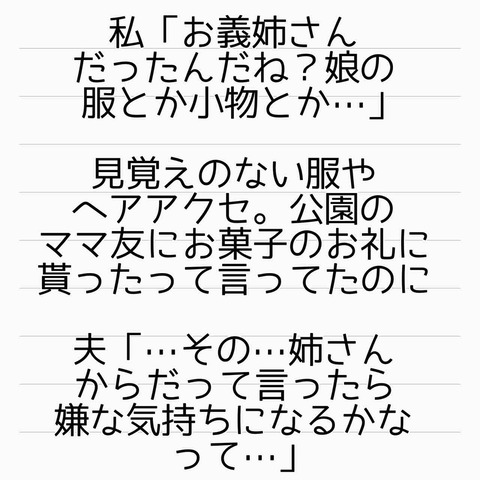 私「お義姉さん
だったんだね？娘の
服とか小物とか…」
見覚えのない服や
ヘアアクセ。公園の
ママ友にお菓子のお礼に
貰ったって言ってたのに
夫「…その…姉さん
からだって言ったら
嫌な気持ちになるかな
って…」